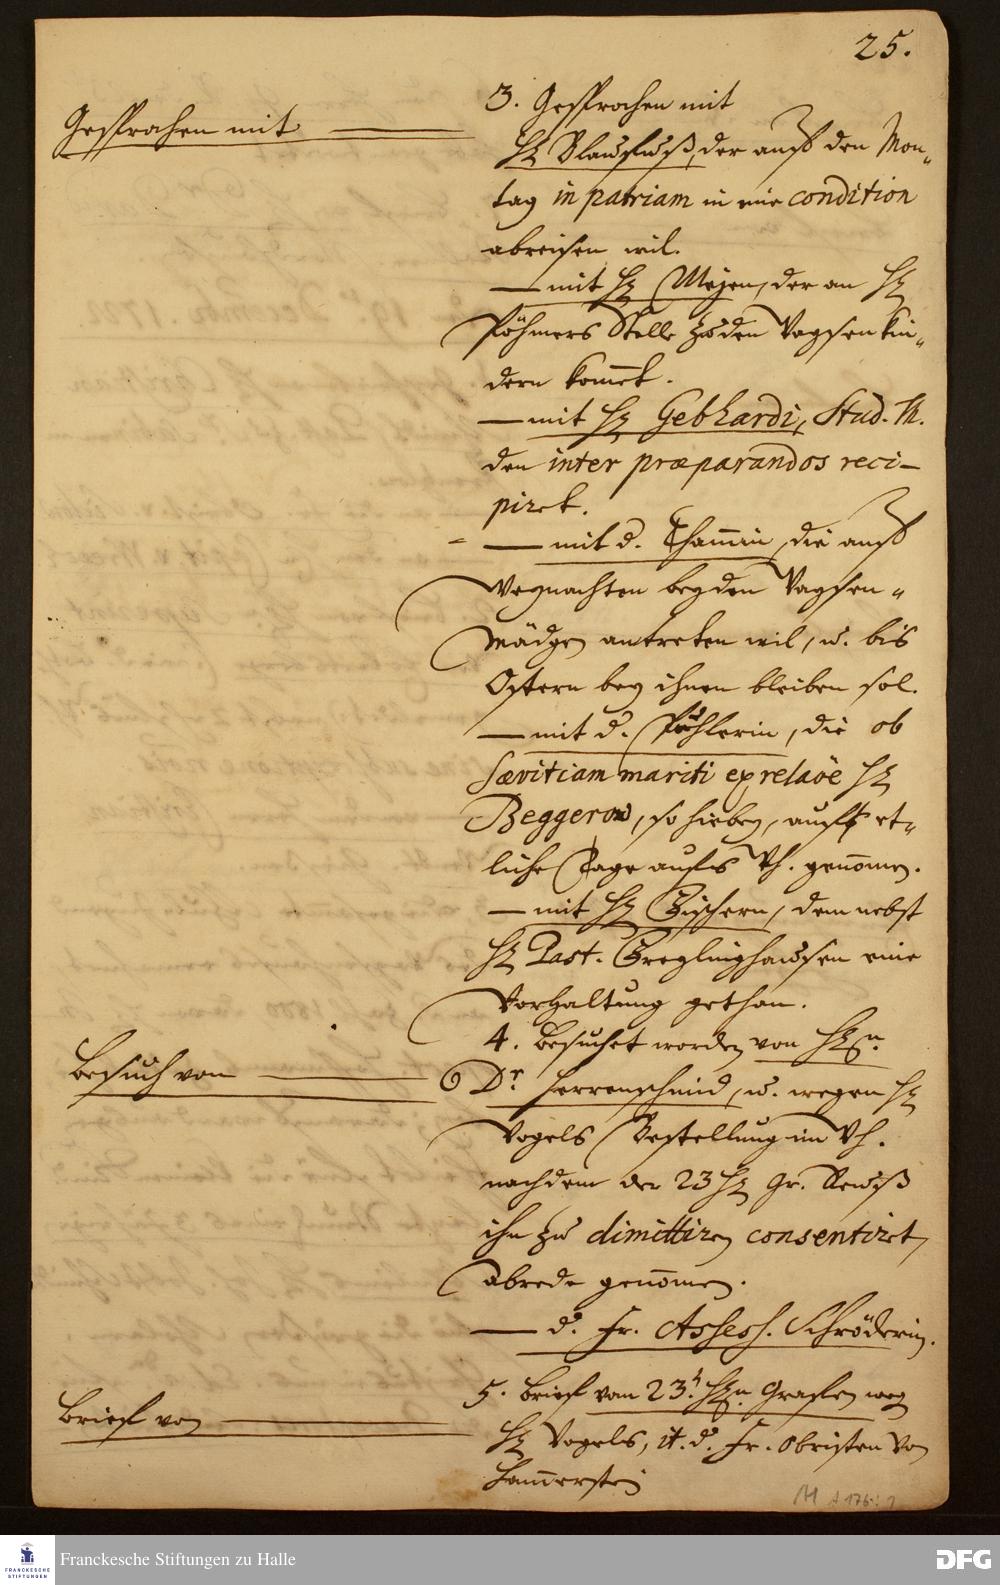 25.
Gesprochen mit
3. Gesprochen mit
H Blaufuß, der auff den Mon-
tag in patriam in eine condition
abreisen wil.
— mit H Meyen, der an H
Pöhmers Stelle zu den Waysenkin-
dern kommt.
— mit H Gebhardi, Stud. Th.
den inter præparandos reci-
piret.
— mit d. Thammin, die auff
Weynachten bey den Waysen-
Mädgen antreten wil, u. bis
Ostern bey ihnen bleiben sol.
— mit d. die ob
sævitiam mariti ex relaõe H
Beggerow, so hiebey, auff et-
liche Tage aufs Wh. genommen.
— mit H Zischern, dem nebst
H Past. Greglinghausen eine
Vorhaltung gethan.
Besuch von
4. Besuchet worden von HEn.
Dr. Herrenschmid, u. wegen H
Vogels Bestellung im Wh.
nachdem der 23 H Gr. Reuß
ihn zu dimittiren consentiret,
abrede genommen.
— d. Fr. Assess. Schröderin.
Brief von
5. Brief vom 23t. HEn. Grafen weg
H Vogels, it. d. Fr. Obristen von
Hammerstein
M A 176:1
Franckesche Stiftungen zu Halle
FRANCKESCHE
STIFTUNGEN
DFG